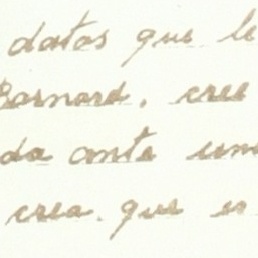 datos que le
Barnard, cree
da ante una
crea. que es